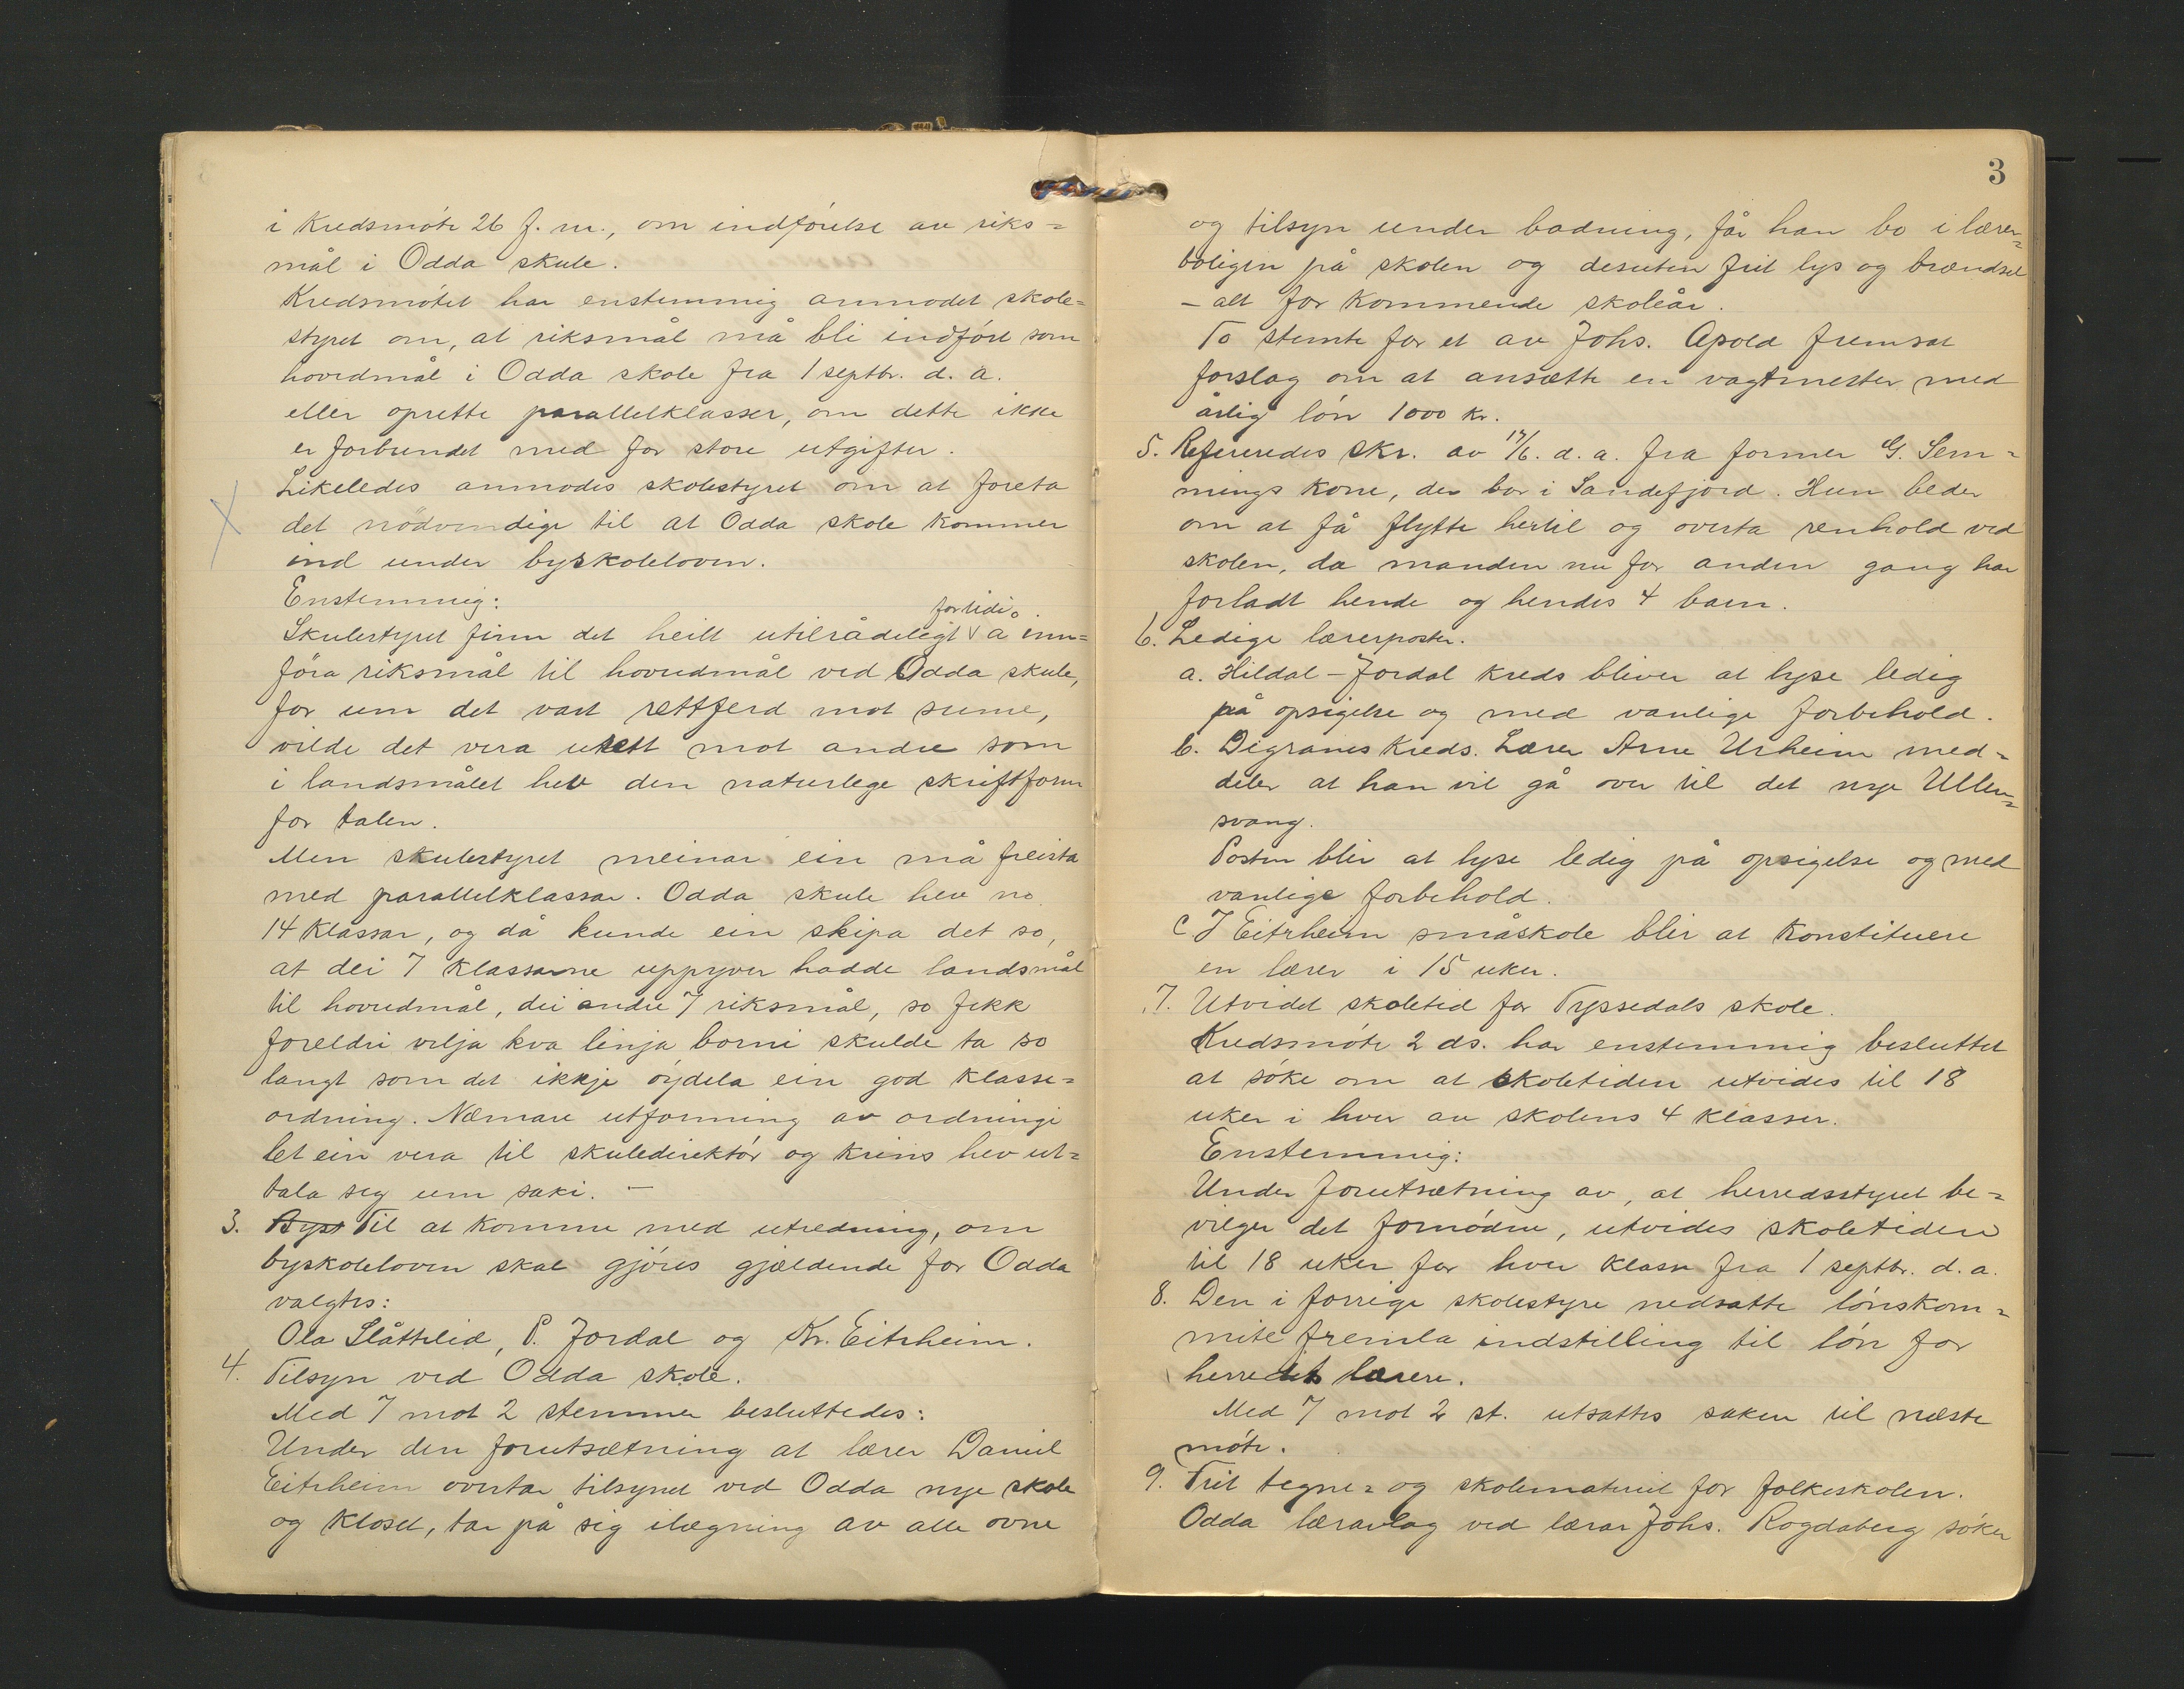 i Kredsmöte 26 f. m., om indförelse av riks=
mål i Odda skule.
Kredsmötet har enstemmig anmodet skole=
styret om, at riksmål må bli indfört som
hovedmål i Odda skole fra 1 septbr. d. a.
eller oprette parallelklasser, om dette ikke
er forbundet med for store utgifter.
Likeledes anmodes skolestyret om at foreta
det nödvendige til at Odda skole kommer
ind under byskoleloven.
Enstemmig:
fortidi
Skulestyret finn det heilt utilrådeligt å inn=
föra riksmål til hovudmål ved Odda skule,
for um det vart rettferd mot sume,
vilde det vera urett mot andre som
i landsmålet hev den naturlege skriftform
for talen.
Men skulestyret meinar ein må freista
med parallelklassar. Odda skule hev no
14 klassar, og då kunde ein skipa det so,
at dei 7 klassarne uppyver hadde landsmål
til hovudmål, dei andre 7 riksmål, so fekk
foreldri velja kva linja borni skulde ta so
langt som det ikkje öydela ein god klasse=
ordning. Næmare utforming av ordningi
let ein vera til skuledirektör og krins hev ut=
tala seg um saki. —
3. Byst Til at komme med utredning, om
byskoleloven skal gjöres gjældende for Odda
valgtes:
Ola Slåttelid, P. Jordal og Kr. Eitrheim.
4. Tilsyn ved Odda skole.
Med 7 mot 2 stemmer besluttedes:
Under den forutsætning at lærer Daniel
Eitrheim overtar tilsynet ved Odda nye skole
og kloset, tar på sig ilægning av alle ovne
3
og tilsyn under badning, får han bo i lærer=
boligen på skolen og desuten frit lys og brændsel
- alt for kommende skoleår.
To stemte for et av Johs. Apold fremsat
forslag om at ansætte en vagtmester med
årlig lön 1000 kr.
5. Refereredes skr. av 17/6. d. a. fra former G. Sem=
mings kone, der bor i Sandefjord. Hun beder
om at få flytte hertil og overta renhold ved
skolen, da manden nu for anden gang har
forladt hende og hendes 4 barn.
6. Ledige lærerposter.
a. Hildal - Jordal kreds bliver at lyse ledig
på opsigelse og med vanlige forbehold.
b. Digranes kreds. Lærer Arne Urheim med=
deler at han vil gå over til det nye Ullen=
svang.
Posten blir at lyse ledig på opsigelse og med
vanlige forbehold.
c I Eitrheim småskole blir at konstituere
en lærer i 15 uker.
7. Utvidet skoletid for Tyssedals skole.
Kredsmöte 2 ds. har enstemmig besluttet
at söke om at skoletiden utvides til 18
uker i hver av skolens 4 klasser.
Enstemmig:
Under forutsætning av, at herredsstyret be=
vilger det fornödne, utvides skoletiden
til 18 uker for hver klasse fra 1 septbr. d. a.
8. Den i forrige skolestyre nedsatte lönskom=
mite fremla indstilling til lön for
herredets lærere.
Med 7 mot 2 st. utsattes saken til næste
möte.
9. Frit tegne= og skolemateriel for folkeskolen.
Odda lærarlag ved lærar Johs. Rogdaberg söker